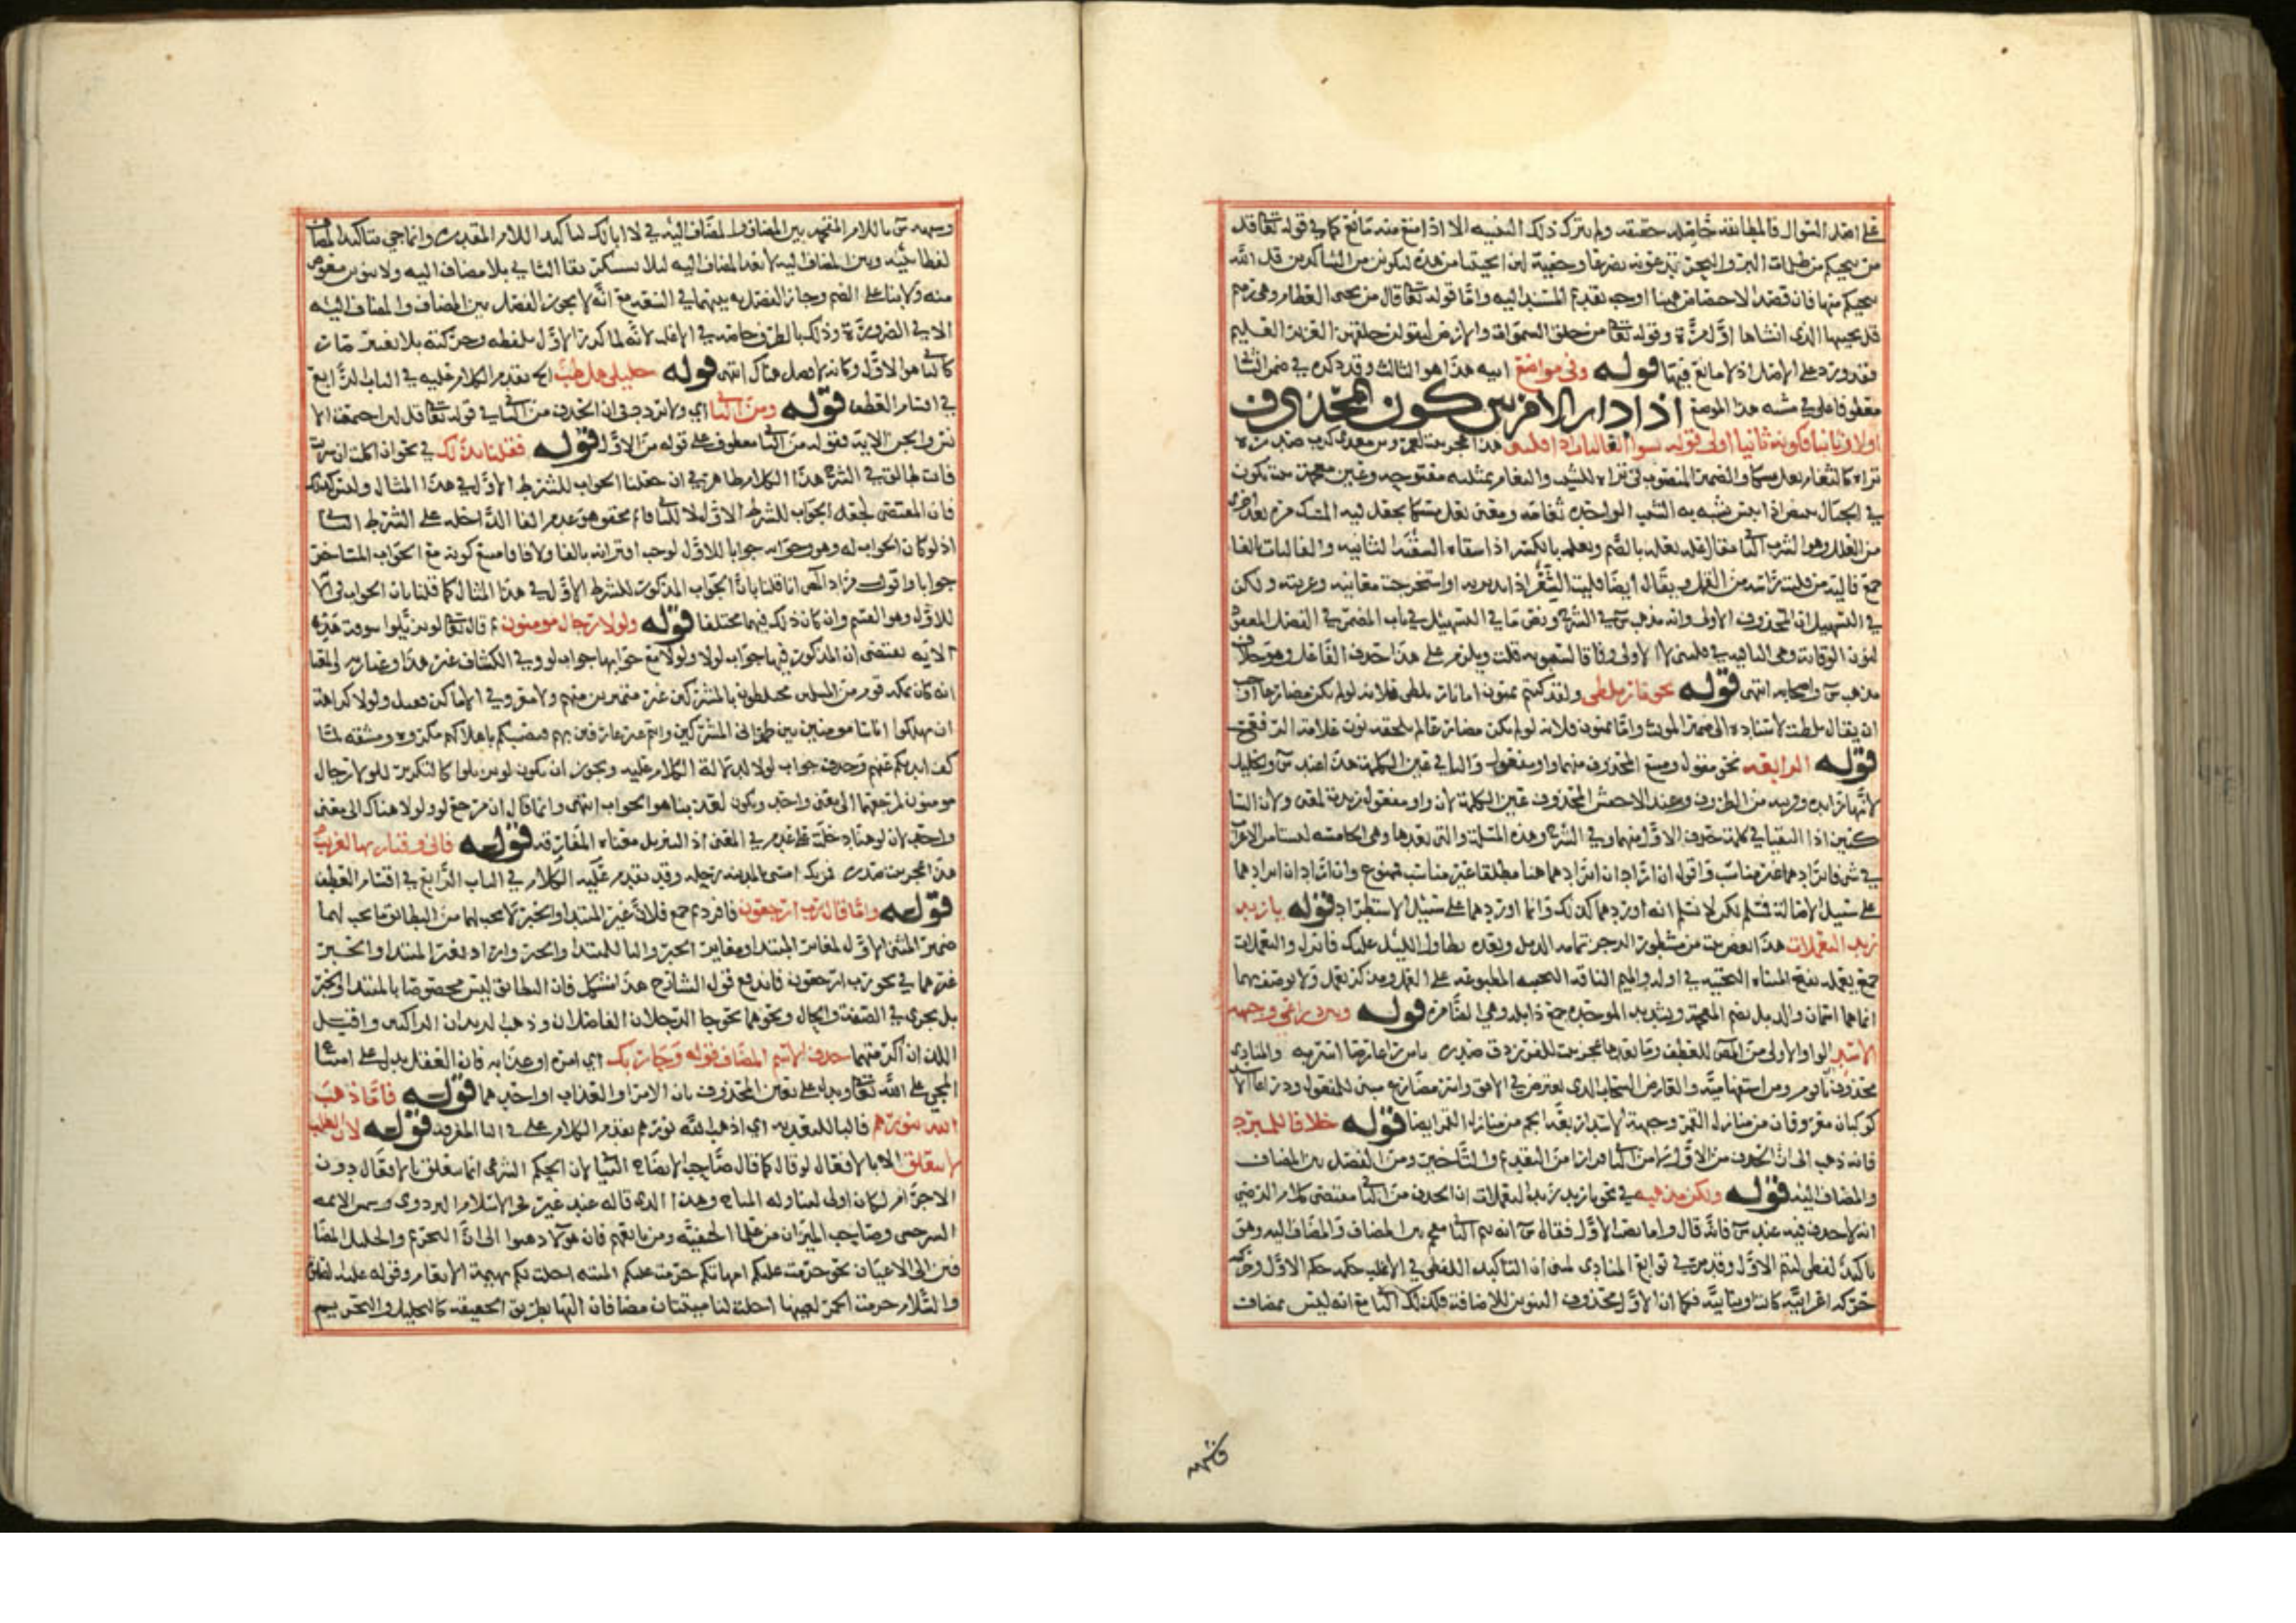 على اصل السوال فالمطابقة حاصله حقيقه ولم يترك ذلك التنبيه الا اذا منع منه مانع كما في قوله تعا قل
من ينجيكم من ظلمات البر والبحر تدعونه تضرعا وخفية لئن انجيتنا من هذه لنكونن من الشاكرين قل الله
ينجيكم منها فان قصد الاختصاص هنا اوجب تقديم المسند اليه واما قوله تعا قال من يحيى العظام وهي رميم
قل يحييها الذي انشاها اول مرة وقوله تعا من خلق السموات والارض ليقولن خلقهن العزيز العليم
فقد ورد على الاصل اذ لا مانع فيها قوله وفي مواضع اتيه هذا هو الثالث وقد ذكره في ضمن الثا
معطوفا على مشبه هذا الموضع اذا دار الامر بين كون المحذوف
اولا وثانيا فكونه ثانيا اولى قوله يسوا الفاليات اذا فليني هذا عجز بيت لعمرو بن معدي كرب صدره
تراه كالثغام يعل مسكا والضمير المنصوب في تراه للشيب والثغام بمثلثة مفتوحه وغين معجمة نبت يكون
في الجبال يبيض اذا يبس يشبه به الشيب الواحده ثغامه ومعنى يعل مسكا يجعل فيه المسك مرة بعد اخرى
من العلل وهو الشرب الثا يقال عله يعله بالضم ويعله بالكسر اذا سقاه السقية الثانيه والفاليات بالفا
جمع فالية من فليت راسه من القمل ويقال ايضا فليت الشعر اذا تدبرته او استخرجت معانيه وغريبه ولكن
في التسهيل ان المحذوف الاولى وانه مذهب س في الشرح ونص ما في التسهيل في باب المضمر في الفصل المعقود
لنون الوقاية وهي الباقيه في فليني لا الاولى وفاقا لسيبويه قلت ويلزم على هذا حذف الفاعل وهو خلاف
مذهب س واصحابه انتهى قوله نحو نارا تلظى ولقد كنتم تمنون اما نارا تلظى فلانه لو لم يكن مضارعا لوجب
ان يقال تلظت لاسناده الى ضمير المونث واما تمنون فلانه لو لم يكن مضارعا لم يلحقه نون علامة الرفع
قوله الرابعه نحو مقول ومبيع المحذوف منهما واو مفعول والباقي عين الكلمة هذا عند س والخليل
لانها زايده وقريبه من الطرف وعند الاخفش المحذوف عين الكلمة لان واو مفعول زيدت لمعنى ولان السا
كنين اذا التقيا في كلمة حذف الاول منهما وفي الشرح وهذه المسئلة والتي بعدها وهي الخامسة ليستا من الاعراب
في شي فايرادهما غير مناسب واقول ان اراد ان ايرادهما هنا مطلقا غير مناسب فممنوع وان اراد ان ايرادهما
على سبيل الاصالة فمسلم لكن لا نسلم انه اوردهما كذلك وانما اوردهما على سبيل الاستطراد قوله يا زيد
زيد اليعملات هذا بعض بيت من مشطور الرجز تمامه الذبل وبعده تطاول الليل عليك فانزل واليعملات
جمع يعمله بفتح المثناة التحتية في اوله والميم الناقة النجيبه المطبوعة على العمل ومذكر يعمل ولا يوصف بهما
انما هما اسمان والذبل بضم المعجمة وتشديد الموحده جمع ذابله وهي الضامر قوله وبين ذراعي وجبهة
الاسد الواو الاولى من المص للعطف وما بعدها عجز بيت للفرزدق صدره يا من راى عارضا اسر به والمنادى
محذوف كوكبان معروفان من منازل القمر وجبهة الاسد اربعة انجم من منازل القمر ايضا قوله خلافا للمبرد
فانه ذهب الى ان الحذف من الاول لا من الثا فرارا من التقديم والتاخير ومن الفصل بين المضاف
والمضاف اليه قوله ولكن مذهبه في نحو يا زيد زيد اليعملات ان الحذف من الثا مقتضى كلام الرضي
انه لا حذف فيه عند س فانه قال واما نصب الاول فقال س انه تيم الثا مقحم بين المضاف والمضاف اليه وهو
تاكيد لفظي لتيم الاول وقد مر في توابع المنادى المبني ان التاكيد اللفظي في الاغلب حكمه حكم الاول وحركته
حركه اعرابيه كانت او بنائيه فكما ان الاول محذوف التنوين للاضافة فكذلك الثا مع انه ليس بمضاف
وشبهه س باللام المقحمه بين المضاف والمضاف اليه في لا ابا لك لتاكيد اللام المقدره وانما جي بتاكيد المضاف
لفظا بينه وبين المضاف اليه لا بعد المضاف اليه لئلا يستنكر بقا الثاني بلا مضاف اليه ولا تنوين معوض
منه ولا بنا على الضم وجاز الفصل به بينهما في السعة مع انه لا يجوز الفصل بين المضاف والمضاف اليه
الا في الضرورة وذلك بالظرف خاصه في الاغلب لانه لما كرر الاول بلفظه وحركته بلا تغيير صار
كان الثا هو الاول وكانه لا فصل هناك انتهى قوله خليلي هل طب الخ تقدم الكلام عليه في الباب الرابع
في اقسام العطف قوله ومن الثا اي ولا تردد في ان الحذف من الثا في قوله تعا قل لئن اجتمعت الا
نس والجن الاية فقوله من الثا معطوف على قوله من الاول قوله فقلنا بذلك في نحو ان اكلت ان شربت
فانت طالق في الشرح هذا الكلام ظاهر في ان جعلنا الجواب للشرط الاول في هذا المثال وليس كذلك
فان المقتضى لجعله الجواب للشرط الاول لا للثا محقق هو عدم الفا الداخله على الشرط الثا
اذ لو كان الجواب له وهو وجوابه جوابا للاول لوجب اقترانه بالفا ولا فا فامتنع كونه مع الجواب المتاخر
جوابا واقول مراد المص انا قلنا بان الجواب المذكور للشرط الاول في هذا المثال كما قلنا بان الجواب في
للاول وهو القسم وان كان ذلك فيهما مختلفا قوله ولولا رجال مومنون قال تعا لو تزيلوا سوقت هذه
الايه يقتضي ان المذكور فيها جواب لولا ولولا مع جوابها جواب لو وفي الكشاف غير هذا وعبارته والمعنى
انه كان بمكه قوم من المسلمين مختلطون بالمشركين غير متميزين منهم ولا معروفي الاماكن فقيل ولولا كراهة
ان تهلكوا اناسا مومنين بين ظهراني المشركين وانتم غير عارفين بهم فتصيبكم باهلاكهم مكروه ومشقه لما
كف ايديكم عنهم وحذف جواب لولا لدلالة الكلام عليه ويجوز ان يكون لو تزيلوا كالتكرير للولا رجال
مومنون لمرجعهما الى معنى واحد ويكون لعذبنا هو الجواب انتهى وانما قال ان مرجع لو ولولا هناك الى معنى
واحد لان لو هنا دخلت على عدم في المعنى اذ التزيل معناه المفارقة قوله فاني وقيار بها لغريب
هذا عجز بيت صدره فمن يك امسى بالمدينة رحله وقد تقدم عليه الكلام في الباب الرابع في اقسام العطف
قوله واما قال رب ارجعون فافرد ثم جمع فلان غير المبتدا والخبر لا يجب لهما من التطابق ما يجب لهما
ضمير المثنى الاول لمغاير المبتدا ومغاير الخبر والثا للمبتدا والخبر واراد بغير المبتدا والخبر
غيرهما في نحو رب ارجعون فاندفع قول الشارح هذا مشكل فان التطابق ليس مخصوصا بالمبتدا والخبر
بل يجري في الصفة والحال ونحوهما نحو جا الرجلان الفاضلان وذهب الزيدان الراكبين واقبل
اللذان اكرمتهما حذف الاسم المضاف قوله وجا ربك اي امره او عذابه فان العقل يدل على امتنا
المجي على الله تعا ويدل على تعيين المحذوف بان الامر او العذاب او احدهما قوله فاما ذهب
الله بنورهم فالبا للتعديه اي اذهب الله نورهم تقدم الكلام على في البا المفرده قوله لان الطلب
لا يتعلق الا بالافعال لو قال كما قال صاحب الايضاح البيا لان الحكم الشرعي انما يتعلق بالافعال دون
الاجرام لكان اولى لتناوله المباح وهذا الذي قاله عند غير فخر الاسلام البزدوي وشمس الائمه
السرخسي وصاحب الميزان من علما الحنفيه ومن تابعهم فان هولا ذهبوا الى ان التحريم والتحليل المضا
فين الى الاعيان نحو حرمت عليكم امهاتكم حرمت عليكم الميتة احلت لكم بهيمة الانعام وقوله عليه الصلاة
والسلام حرمت الخمر لعينها احلت لنا ميتتان مضافان اليها بطريق الحقيقه كالتحليل والتحريم